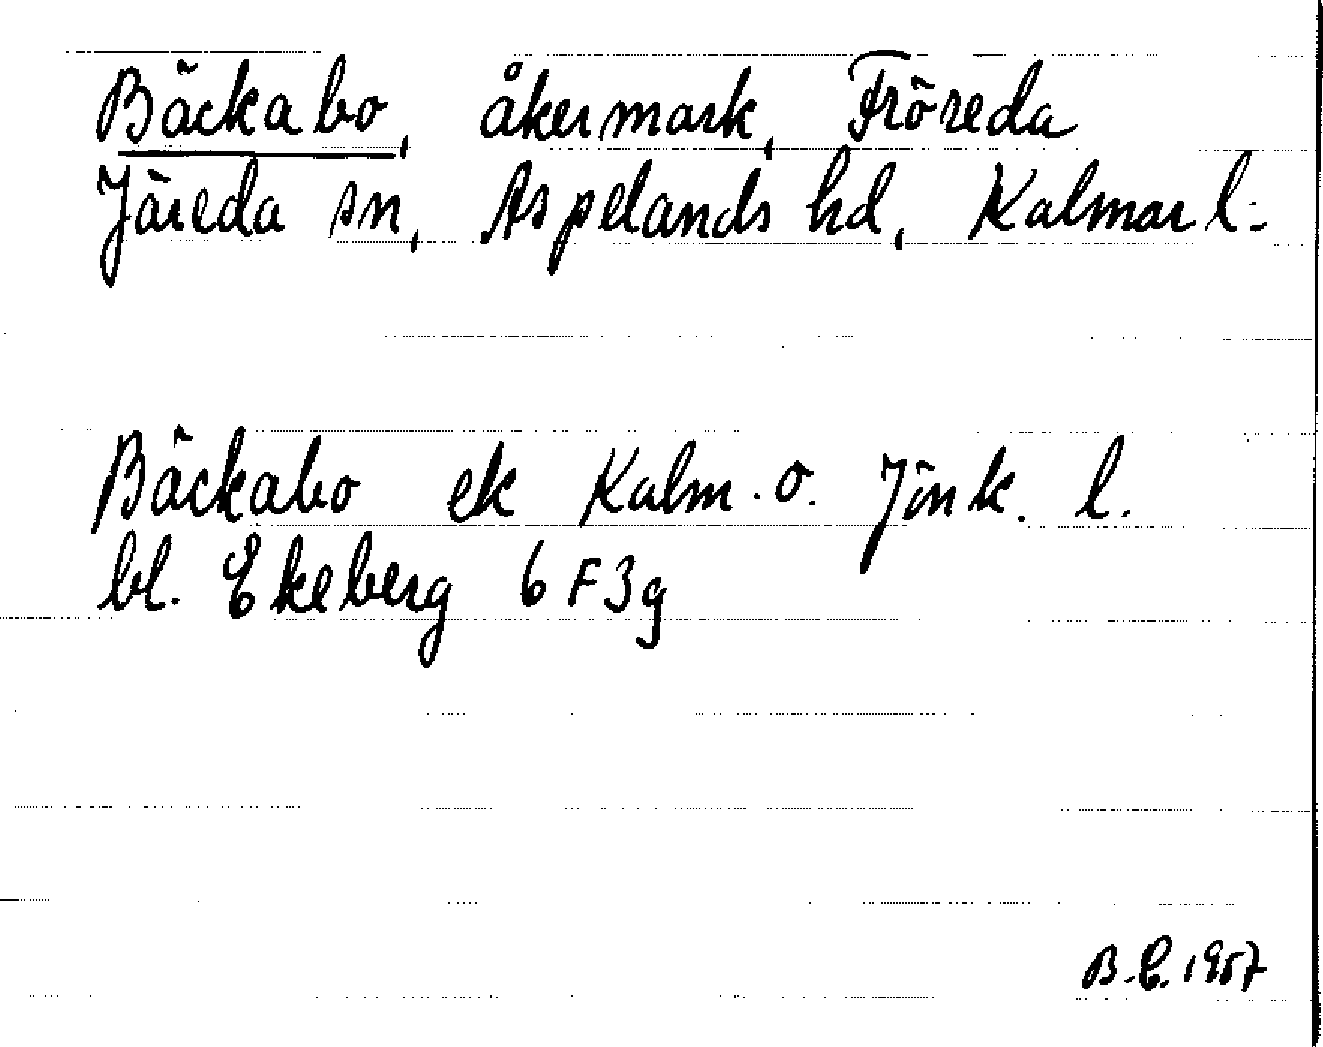 Bäckabo, åkermark, Fröreda
Järeda sn, Aspelands hd, Kalmar l.
Bäckabo ek Kalm. o. Jönk. l.
bl. Ekeberg 6 F 3g
B.E. 1957